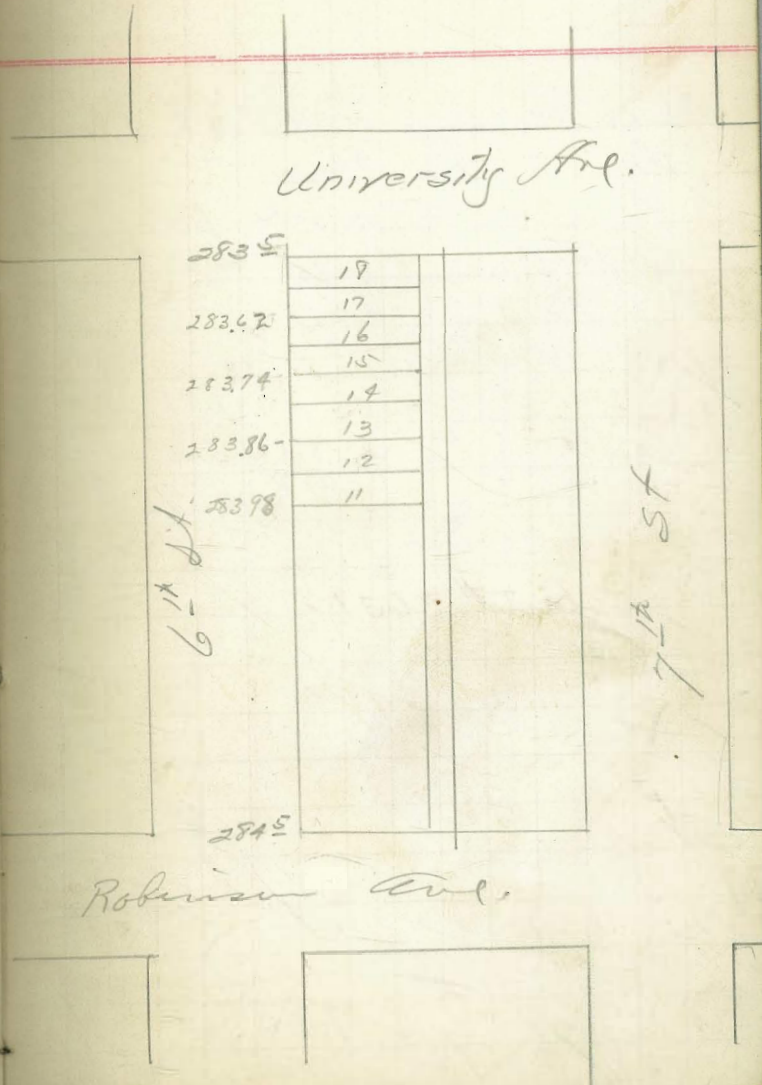 University Ave.
283 5
18
17
283.62
16
15
283.74
14
13
283.86-
12
11
283 98
6th St
7th St
284 5
Robinson Ave.